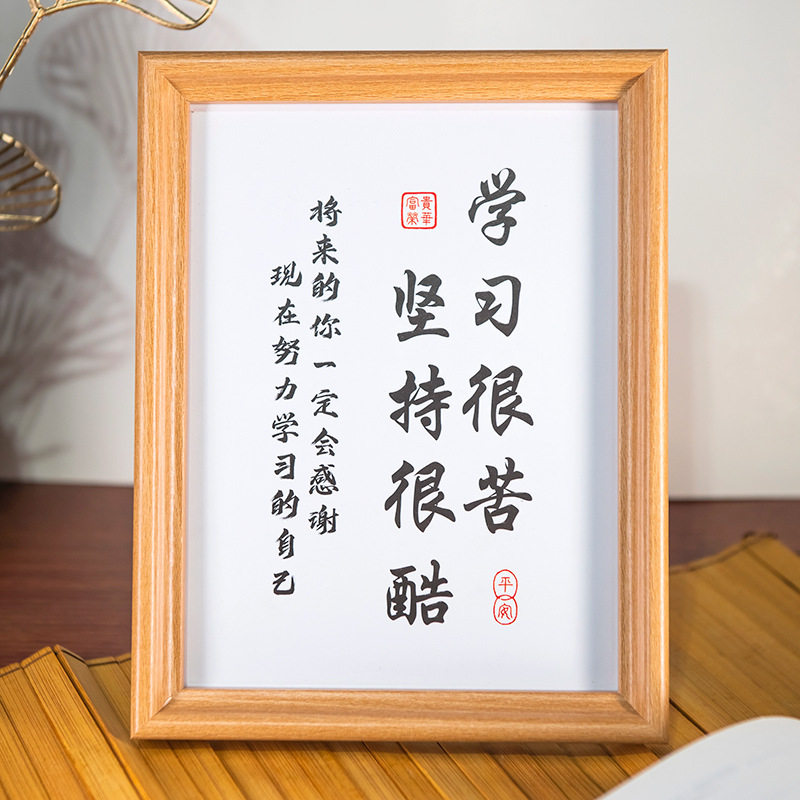 学习很苦
平安
富貴
榮華
坚持很酷
将来的你一定会感谢
现在努力学习的自己